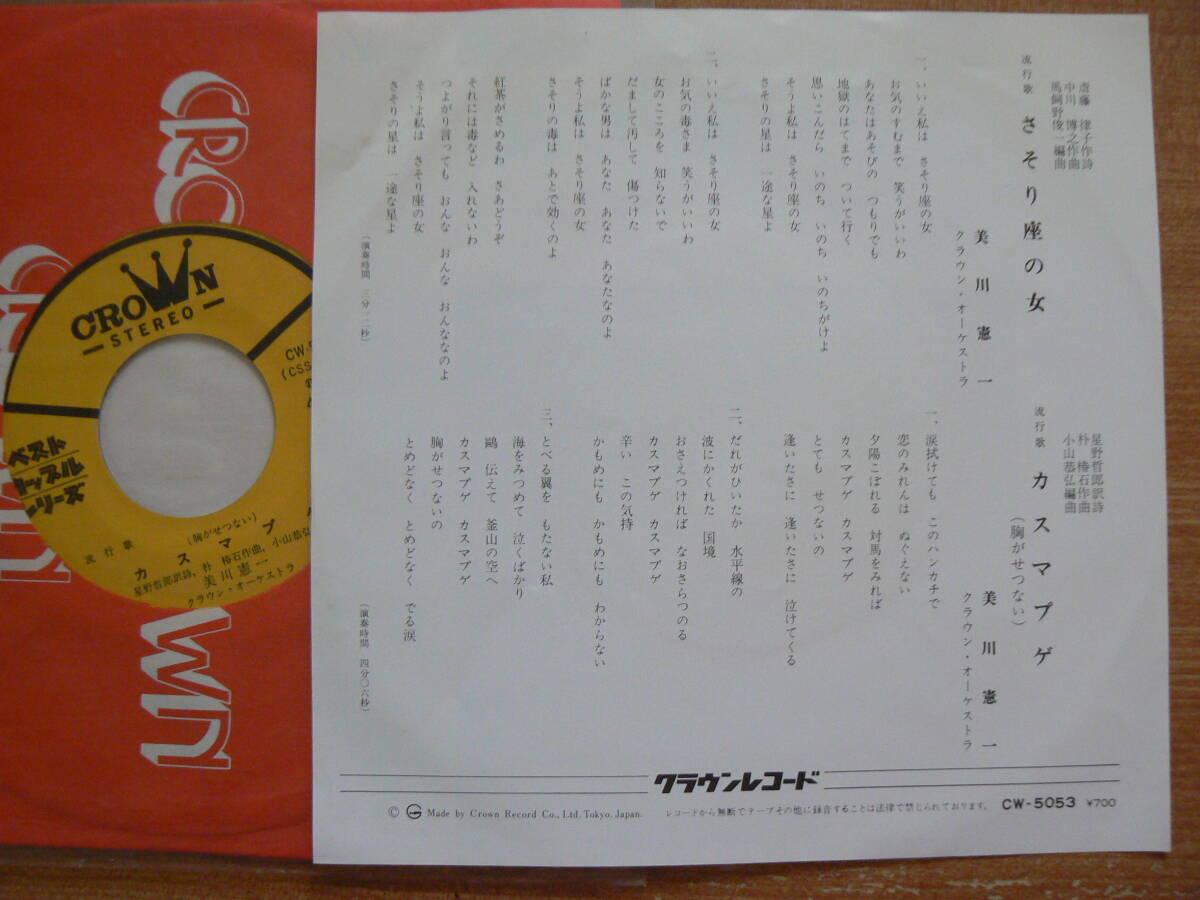 流行歌 さそり座の女
斎藤 律子作詩
中川 博之作曲
馬飼野俊一編曲
美川憲一
クラウン・オーケストラ
一、いいえ私は さそり座の女
お気のすむまで 笑うがいいわ
あなたはあそびの つもりでも
地獄のはてまで ついて行く
思いこんだら いのち いのち いのちがけよ
そうよ私は さそり座の女
さそりの星は 一途な星よ
二、いいえ私は さそり座の女
お気の毒さま 笑うがいいわ
女のこころを 知らないで
だまして汚して 傷つけた
ばかな男は あなた あなた あなたなのよ
そうよ私は さそり座の女
さそりの毒は あとで効くのよ
紅茶がさめるわ さあどうぞ
それには毒など 入れないわ
つよがり言っても おんな おんな おんななのよ
そうよ私は さそり座の女
さそりの星は 一途な星よ
(演奏時間 三分一二秒)
流行歌 カスマプゲ
(胸がせつない)
星野哲郎訳詩
朴 椿石作曲
小山恭弘編曲
美川憲一
クラウン・オーケストラ
一、涙拭けても このハンカチで
恋のみれんは ぬぐえない
夕陽こぼれる 対馬をみれば
カスマプゲ カスマプゲ
とても せつないの
逢いたさに 逢いたさに 泣けてくる
二、だれがひいたか 水平線の
波にかくれた 国境
おさえつければ なおさらつのる
カスマプゲ カスマプゲ
辛い この気持
かもめにも かもめにも わからない
三、とべる翼を もたない私
海をみつめて 泣くばかり
鷗 伝えて 釜山の空へ
カスマプゲ カスマプゲ
胸がせつないの
とめどなく とめどなく でる涙
(演奏時間 四分〇六秒)
クラウンレコード
© Made by Crown Record Co., Ltd. Tokyo. Japan.
レコードから無断でテープその他に録音することは法律で禁じられております。
CW-5053 ¥700
CROWN
STEREO
(CSS
ベスト
カップル
シリーズ
流行歌
(胸がせつない)
カスマプ
星野哲郎訳詩、朴 椿石作曲、小山恭弘
美川憲一
クラウン・オーケストラ
CRO
WN